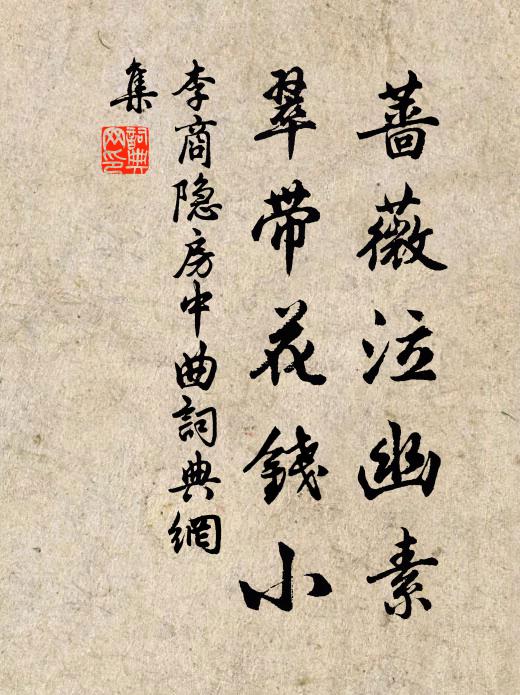 薔薇泣幽素
翠帶花錢小
李商隐房中曲詞典網
集
詞典網印